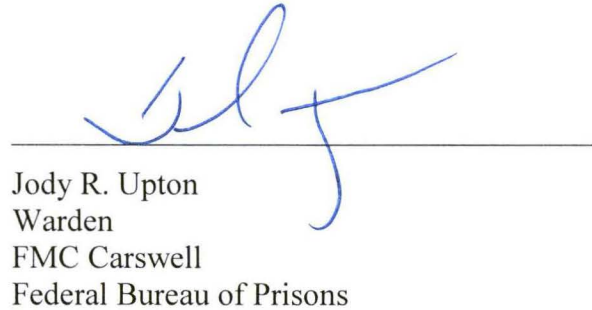 Jody R. Upton
Warden
FMC Carswell
Federal Bureau of Prisons